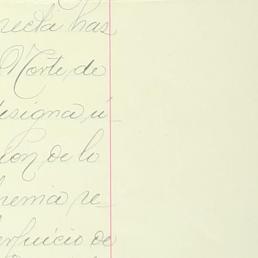 recta has
Norte, de
designa ú-
ion, de lo
remia re
erjuicio de